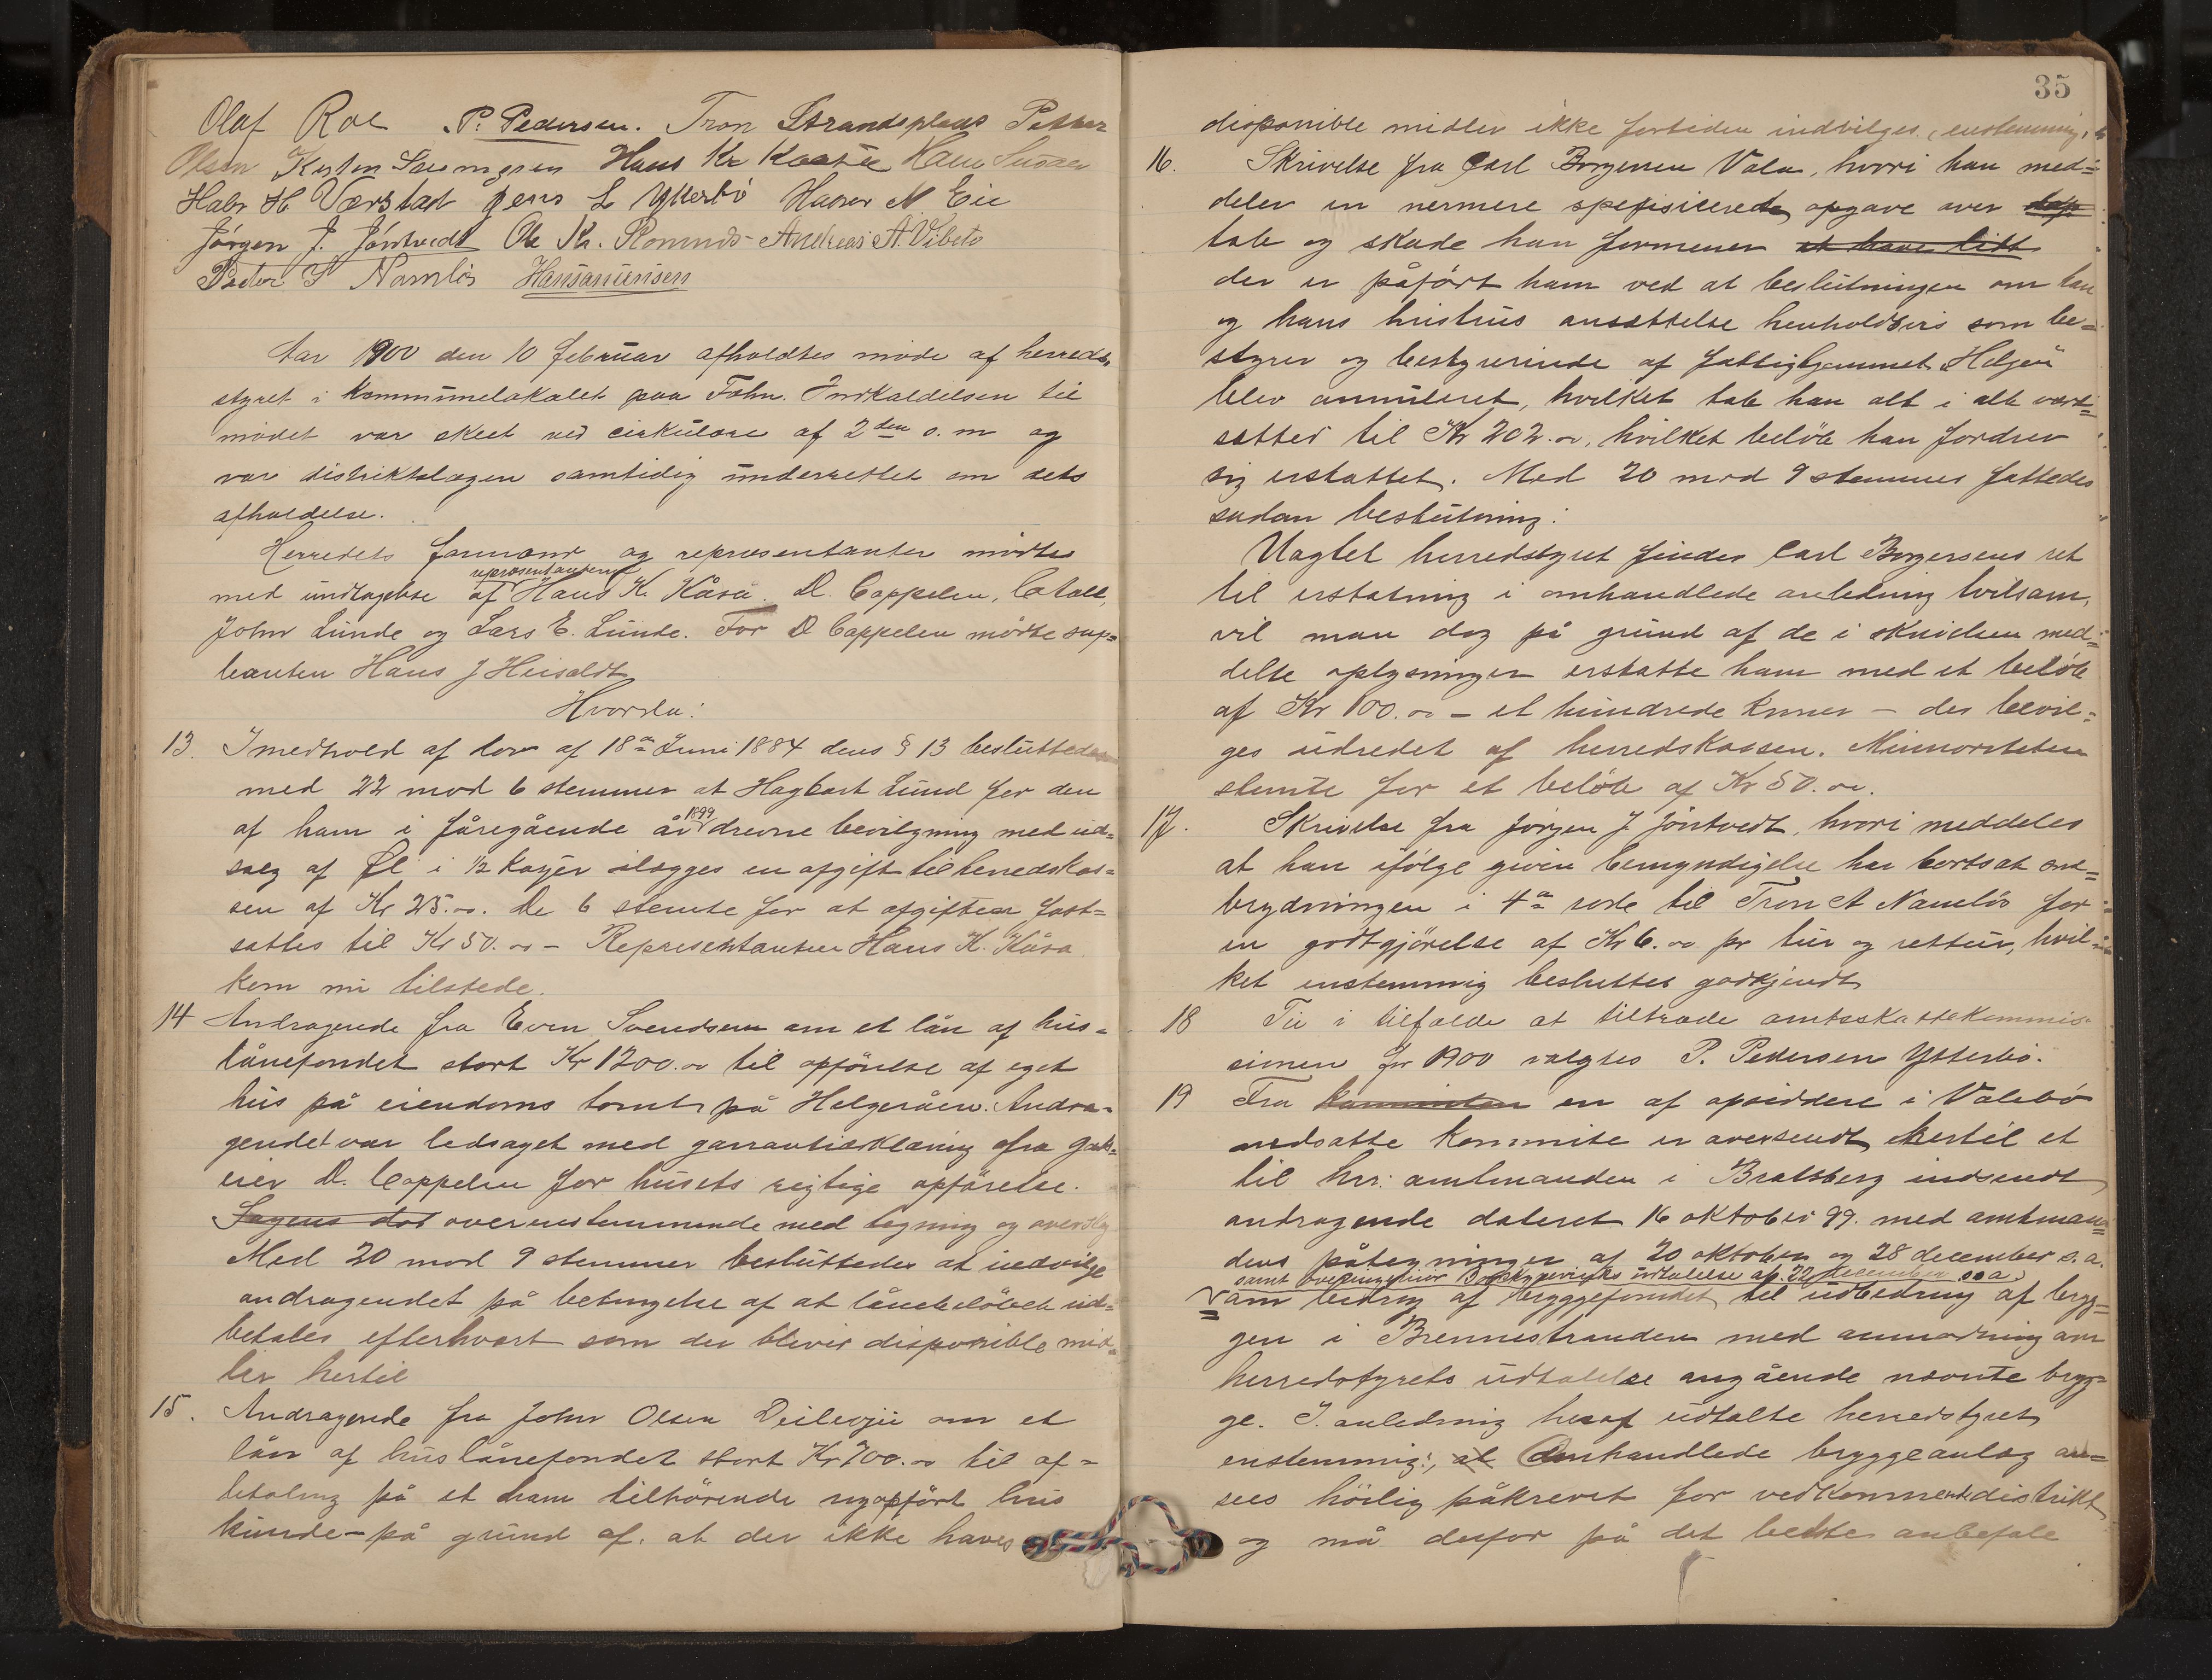 Olaf Roe P. Pedersen. Tron Strandsplads Petter
Olsen Hans Kr Kaasa Hans
Halv H. Værstad Jens L Ytterbö Halvor N Eie
Jörgen J. Jöntvedt Ole Kr. Romnæs Andreas A. Vibeto
Peder S Namlös Hans Hansen
Aar 1900 den 10 februar afholdtes möde af herreds-
styret i kommunelokalet paa Fahn. Indkaldelsen til
mödet var skeet ved cirkulære af 2den d. m og
var distriktslægen samtidig underrettet om dets
afholdelse.
Herredets formænd og repræsentanter mödte
med undtagelse af repræsentanterne Hans K. Kåsa. D. Cappelen, C. Tall,
John Lunde og Lars E. Lunde. For D Cappelen mödte sup=
leanten Hans J Heisoldt
Hvorda:
13. I medhold af lov af 18de Juni 1884 dens § 13 besluttedes
med 22 mod 6 stemmer at Hagbart Lund for den
af ham i foregående år 1899 drevne bevilgning med ud-
salg af Öl i 1/2 kager ilægges en afgift til herredskas=
sen af Kr 25.00. De 6 stemte for at afgiften fast=
sattes til Kr 50.00 - Representanten Hans K. Kåsa
kom nu tilstede.
14 Andragende fra Even Svendsen om et lån af hus=
lånefondet stort Kr 1200.00 til opförelse af eget
hus på eiendoms tomt på Helgeråen. Andra=
gendet var ledsaget med garrantierklæring fra gods=
eier D. Cappelen for husets rigtige opförelse.
Sagens dok overensstemmende med tegning og overslag
Med 20 mod 9 stemmer besluttedes at indvilge
andragendet på betingelse af at lånebelöbet ud=
betales efterhvert som der blever disponible mid=
ler hertil
15. Andragende fra John Olsen Deilevju om et
lån af huslånefondet stort Kr 700.00 til af=
betaling på et ham tilhörende nyopfört hus
kunde - på grund af. at der ikke haves
35
disponible midler ikke fortiden indvilges, enstemmig.
16. Skrivelse fra Carl Borgersen Vala, hvori han med=
deler en nermere spesisicerede opgave over
tab og skade han formener at have lidt
der er påfört ham ved at beslutningen om han
og hans hustrus ansættelse henholdsvis som be=
styrer og bestyrerinde af fattighjemmet Helgen
blev annuleret, hvilket tab han alt i alt værd=
satter til Kr 202.00, hvilket belöb han fordrer
sig erstattet. Med 20 mod 9 stemmer fattedes
sådan beslutning:
Uagtet herredstyret finder Carl Borgersens ret
til erstatning i omhandlede anledning tvilsom,
vil man dog på grund af de i skrivelsen med=
delte oplysninger erstatte ham med et belöb
af Kr 100.00 - et hundrede kroner - der bevil=
ges udredet af herredskassen. Minnoriteten
stemte for et belöb af Kr 50.00.
17. Skrivelse fra Jörgen J Jöntvedt, hvori meddeles
at han ifölge given bemyndigelse har bortsat sne=
brydningen i 4de rode til Tron A Namlös for
en godtgjörelse af Kr 6.00 pr tur og rettur, hvil=
ket enstemmig besluttes godkjendt
18 Til i tilfælde at tiltræde amtsskattekommis-
sionen for 1900 valgtes P. Pedersen Ytterbö.
19 Fra kommiteen en af opsiddere i Valebö
nedsatte kommite er oversendt hertil et
til hrr: amtmanden i Bratsberg indsendt
andragende dateret 16 oktober 99. med amtman=
dens påtegninger af 20 oktober og 28 december s.a.
samt overingeniör udtalelse af 22 december s.a.
om bidrag af bryggefondet til udbedring af bryg=
gen i Brennestranden med anmodning om
herredstyrets udtalelse angående nævnte bryg=
ge. I anledning heraf udtalte herredstyret
enstemmig:, at Omhandlede bryggeanlæg an=
sees höilig påkrevet for vedkommende distrikt
og må derfor på det bedste anbefale